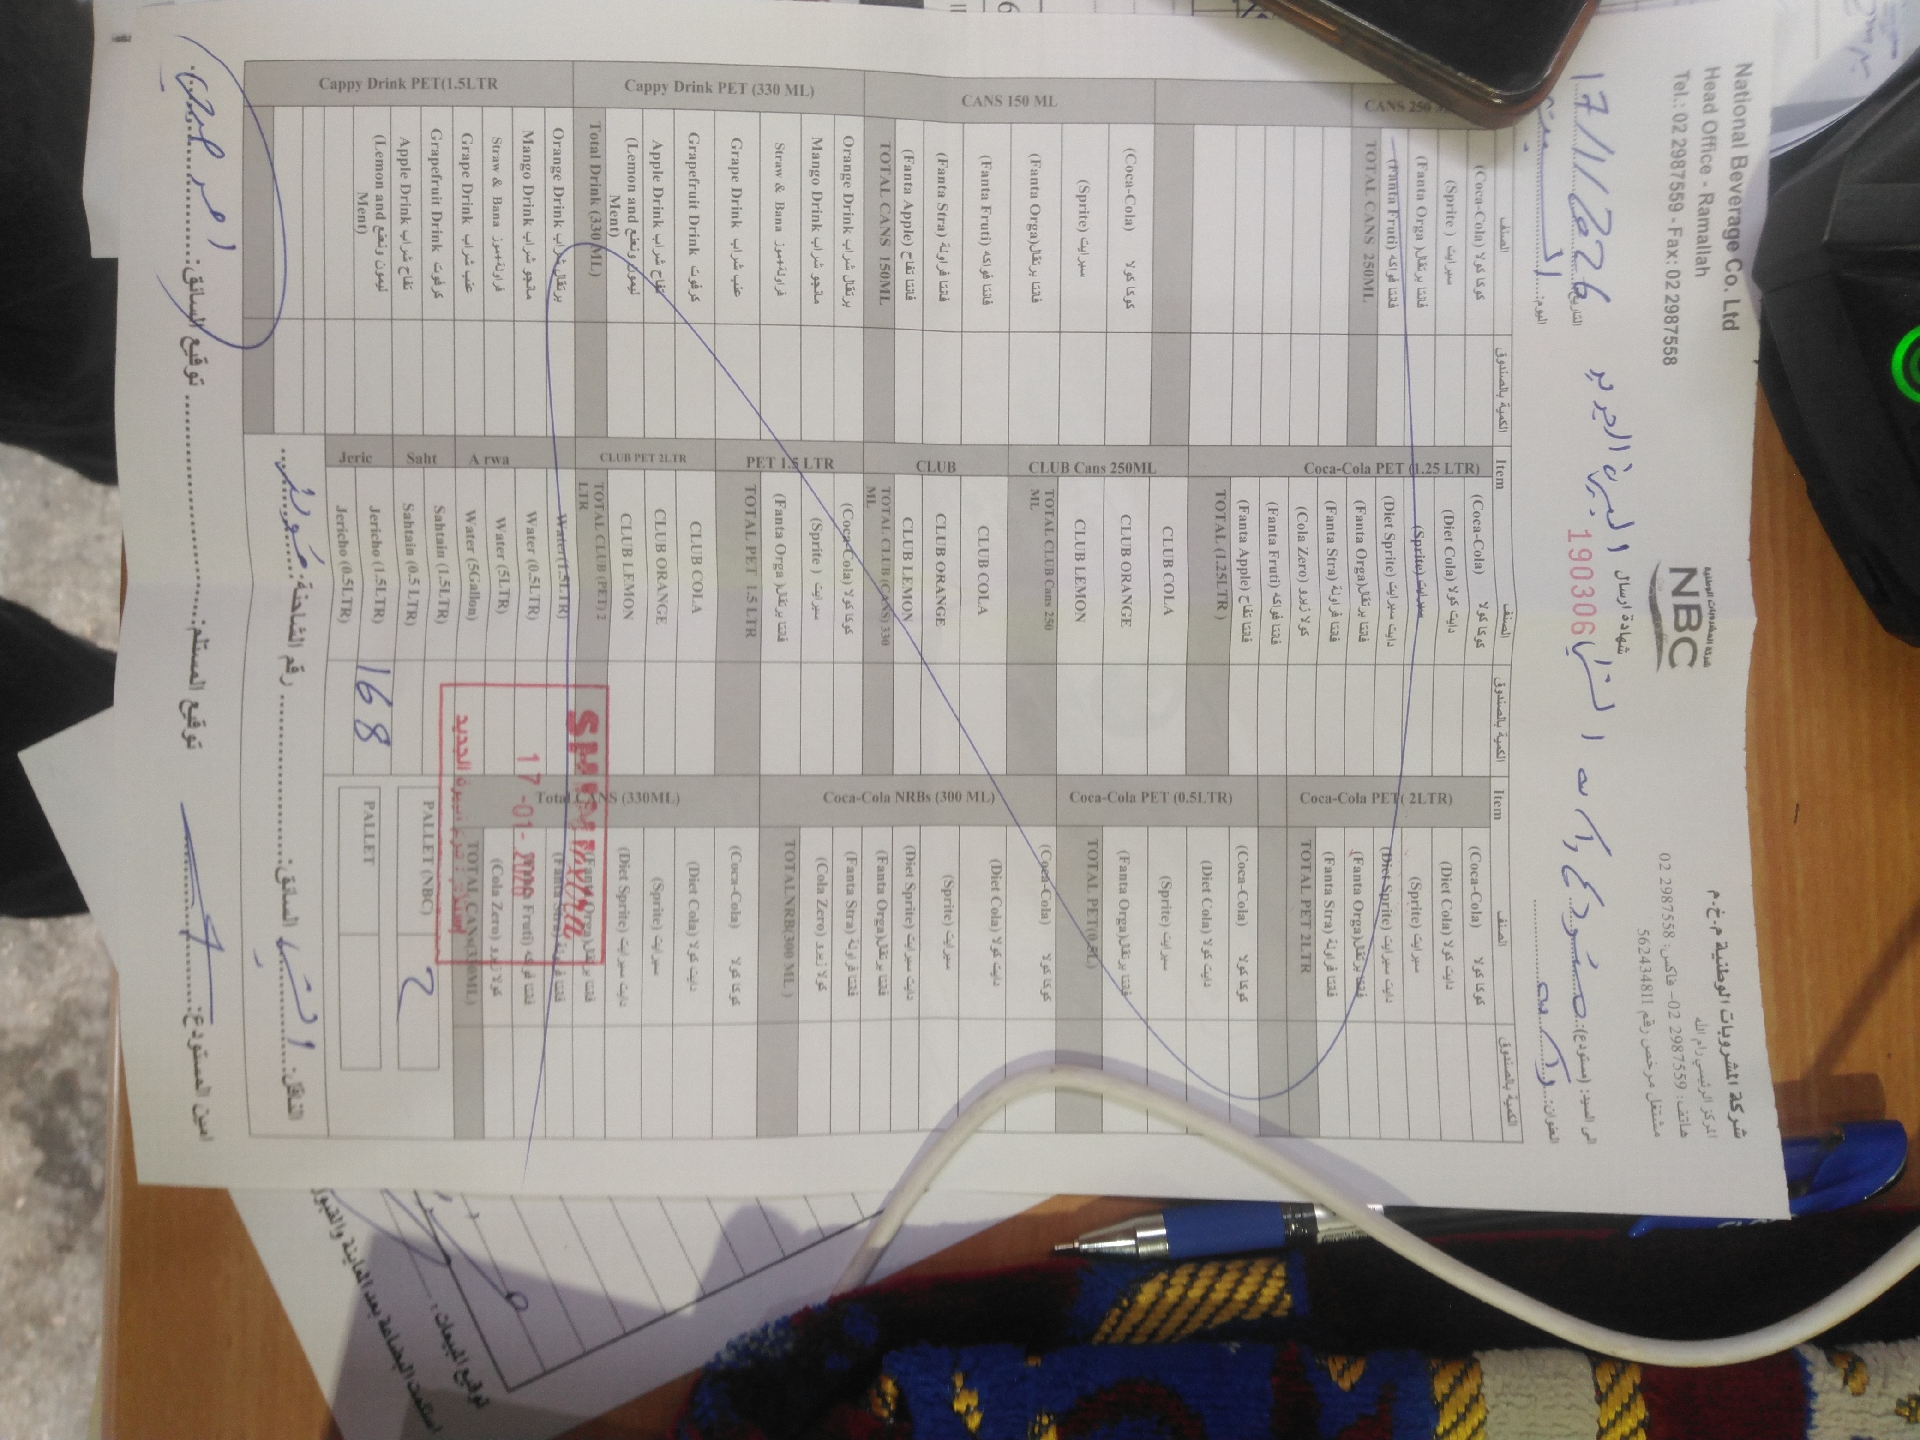 National Beverage Co. Ltd
Head Office - Ramallah
Tel.: 02 2987559 - Fax: 02 2987558
شركة المشروبات الوطنية
NBC
شركة المشروبات الوطنية م.خ.م
المركز الرئيسي رام الله
هاتف: 2987559 02- فاكس: 2987558 02
مشتغل مرخص رقم 562434811
شهادة ارسال
190306
التاريخ: 17/1/2026
اليوم: السبت
الى السيد: (مستودع):
العنوان:
الصنف الكمية بالصندوق Item الصنف الكمية بالصندوق Item الصنف الكمية بالصندوق
CANS 250
(Coca-Cola) كوكا كولا
(Sprite) سبرايت
(Fanta Orga) فانتا برتقال
(Fanta Fruti) فانتا فواكه
TOTAL CANS 250ML
CANS 150 ML
(Coca-Cola) كوكا كولا
(Sprite) سبرايت
(Fanta Orga) فانتا برتقال
(Fanta Fruti) فانتا فواكه
(Fanta Stra) فانتا فراولة
(Fanta Apple) فانتا تفاح
TOTAL CANS 150ML
Cappy Drink PET (330 ML)
Orange Drink برتقال شراب
Mango Drink مانجو شراب
Straw & Bana فراولة+موز
Grape Drink عنب شراب
Grapefruit Drink كرفوت
Apple Drink تفاح شراب
(Lemon and ليمون ونعنع
Ment)
Total Drink (330 ML)
Cappy Drink PET(1.5LTR
Orange Drink برتقال شراب
Mango Drink مانجو شراب
Straw & Bana فراولة+موز
Grape Drink عنب شراب
Grapefruit Drink كرفوت
Apple Drink تفاح شراب
(Lemon and ليمون ونعنع
Ment)
Coca-Cola PET (1.25 LTR)
(Coca-Cola) كوكا كولا
(Diet Cola) دايت كولا
(Sprite) سبرايت
(Diet Sprite) دايت سبرايت
(Fanta Orga) فانتا برتقال
(Fanta Stra) فانتا فراولة
(Cola Zero) كولا زيرو
(Fanta Fruti) فانتا فواكه
(Fanta Apple) فانتا تفاح
TOTAL (1.25LTR)
CLUB Cans 250ML
CLUB COLA
CLUB ORANGE
CLUB LEMON
TOTAL CLUB Cans 250
ML
CLUB
CLUB COLA
CLUB ORANGE
CLUB LEMON
TOTAL CLUB (CANS) 330
ML
PET 1.5 LTR
(Coca-Cola) كوكا كولا
(Sprite) سبرايت
(Fanta Orga) فانتا برتقال
TOTAL PET 1.5 LTR
CLUB PET 2LTR
CLUB COLA
CLUB ORANGE
CLUB LEMON
TOTAL CLUB (PET) 2
LTR
Arwa
Water(1.5LTR)
Water (0.5LTR)
Water (5LTR)
Water (5Gallon)
Saht
Sahtain (1.5LTR)
Sahtain (0.5 LTR)
Jeric
Jericho (1.5LTR) 168
Jericho (0.5LTR)
Coca-Cola PET( 2LTR)
(Coca-Cola) كوكا كولا
(Diet Cola) دايت كولا
(Sprite) سبرايت
(Diet Sprite) دايت سبرايت
(Fanta Orga) فانتا برتقال
(Fanta Stra) فانتا فراولة
TOTAL PET 2LTR
Coca-Cola PET (0.5LTR)
(Coca-Cola) كوكا كولا
(Diet Cola) دايت كولا
(Sprite) سبرايت
(Fanta Orga) فانتا برتقال
TOTAL PET(0.5L)
Coca-Cola NRBs (300 ML)
(Coca-Cola) كوكا كولا
(Diet Cola) دايت كولا
(Sprite) سبرايت
(Diet Sprite) دايت سبرايت
(Fanta Orga) فانتا برتقال
(Fanta Stra) فانتا فراولة
(Cola Zero) كولا زيرو
TOTAL NRB(300 ML )
Total CANS (330ML)
(Coca-Cola) كوكا كولا
(Diet Cola) دايت كولا
(Sprite) سبرايت
(Diet Sprite) دايت سبرايت
(Fanta Orga) فانتا برتقال
(Fanta Stra) فانتا
Fruti) فانتا فواكه
(Cola Zero) كولا زيرو
TOTAL CANS(330ML)
17-01-
PALLET (NBC) 2
PALLET
الناقل:
السائق:
رقم الشاحنة:
امين المستودع:
توقيع المستلم:
توقيع السائق:
توقيع المبيعات:
استلمت البضاعة بعد المعاينة والقبول